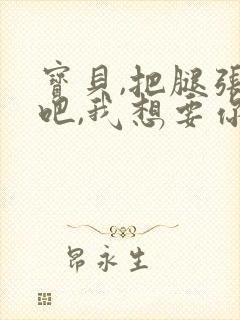 寶貝,把腿張
吧,我想要你
昂永生